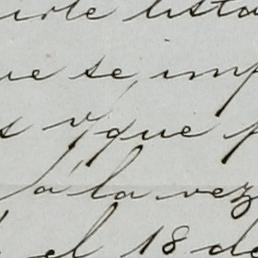 lista
ue se imp
s y que p
a la vez
el 18 de